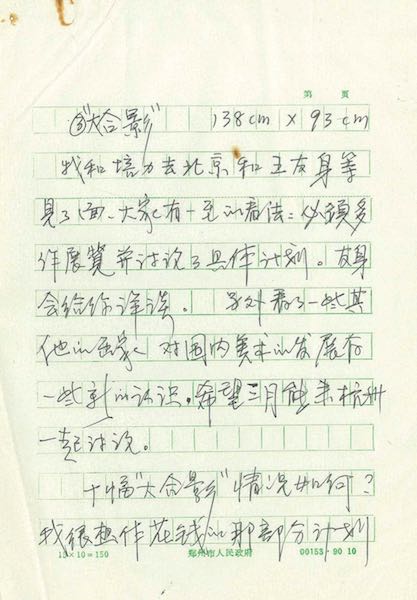 第 页
③“大合影” 138cm × 93cm
我和培力去北京和王友身等
见了面、大家有一至的看法：必须多
作展览并讨论了具体计划。友身
会给你详谈。 另外看了一些其
他的画家 对国内美术的发展有
一些新的认识。希望三月能来杭州
一起讨论。
十幅“大合影”情况如何？
我很想作花钱的那部分计划
15×10=150 郑州市人民政府 00153·90 10